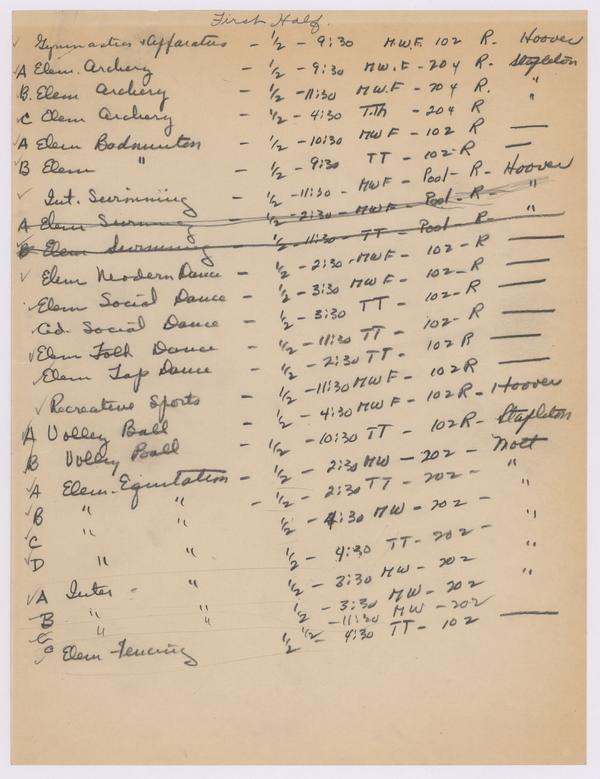 First Half.
✓ Gymnastics & Apparatus - 1/2 - 9:30 M.W.F. 102 R- Hoover
A Elem. Archery - 1/2 - 9:30 M.W.F - 204 R - Stapleton
B. Elem Archery - 1/2 - 11:30 M.W.F - 204 R. "
C Elem Archery - 1/2 - 4:30 T.Th - 204 R "
A Elem Badminton - 1/2 - 10:30 MWF - 102 R —
B Elem " - 1/2 - 9:30 TT - 102-R —
✓ Int. Swimming - 1/2 - 11:30 - MWF - Pool - R - Hoover
A Elem Swimming - 1/2 - 2:30 - MWF - Pool - R - "
Elem Swimming - 1/2 - 11:30 - TT - Pool - R - "
✓ Elem Modern Dance - 1/2 - 2:30 - MWF - 102 - R —
Elem Social Dance - 1/2 - 3:30 MWF - 102 - R —
Ad. Social Dance - 1/2 - 3:30 TT - 102 - R —
✓ Elem Folk Dance - 1/2 - 11:30 TT - 102 - R —
Elem Tap Dance - 1/2 - 2:30 TT - 102 R —
✓ Recreative Sports - 1/2 - 11:30 MWF - 102 R —
A Volley Ball - 1/2 - 4:30 MWF - 102 R - Hoover
B Volley Ball - 1/2 - 10:30 TT - 102 R - Stapleton
✓ A Elem. Equitation - 1/2 - 2:30 MW - 202 - Nott
✓ B " " - 1/2 - 2:30 TT - 202 - "
C " " 1/2 - 4:30 MW - 202 - "
✓ D " " 1/2 - 4:30 TT - 202 - "
✓ A Inter - " 1/2 - 3:30 MW - 202 "
B " " 1/2 - 3:30 MW - 202 "
C " " 1/2 - 11:30 MW - 202
Elem Fencing 1/2 - 4:30 TT - 102 —